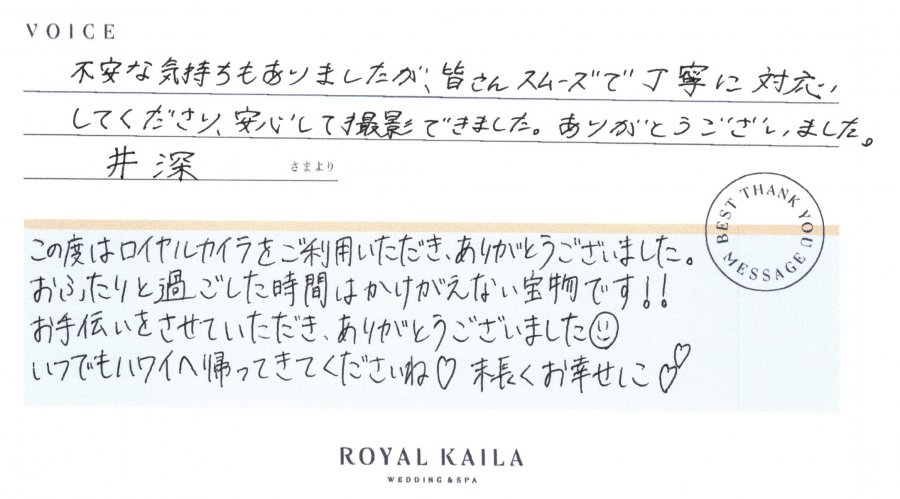 VOICE
不安な気持ちもありましたが、皆さんスムーズで丁寧に対応
してくださり、安心して撮影できました。ありがとうございました。
井深 さまより
BEST THANK YOU MESSAGE
この度はロイヤルカイラをご利用いただき、ありがとうございました。
おふたりと過ごした時間はかけがえない宝物です!!
お手伝いをさせていただき、ありがとうございました☺
いつでもハワイへ帰ってきてくださいね♡ 末長くお幸せに♡♡
ROYAL KAILA
WEDDING & SPA